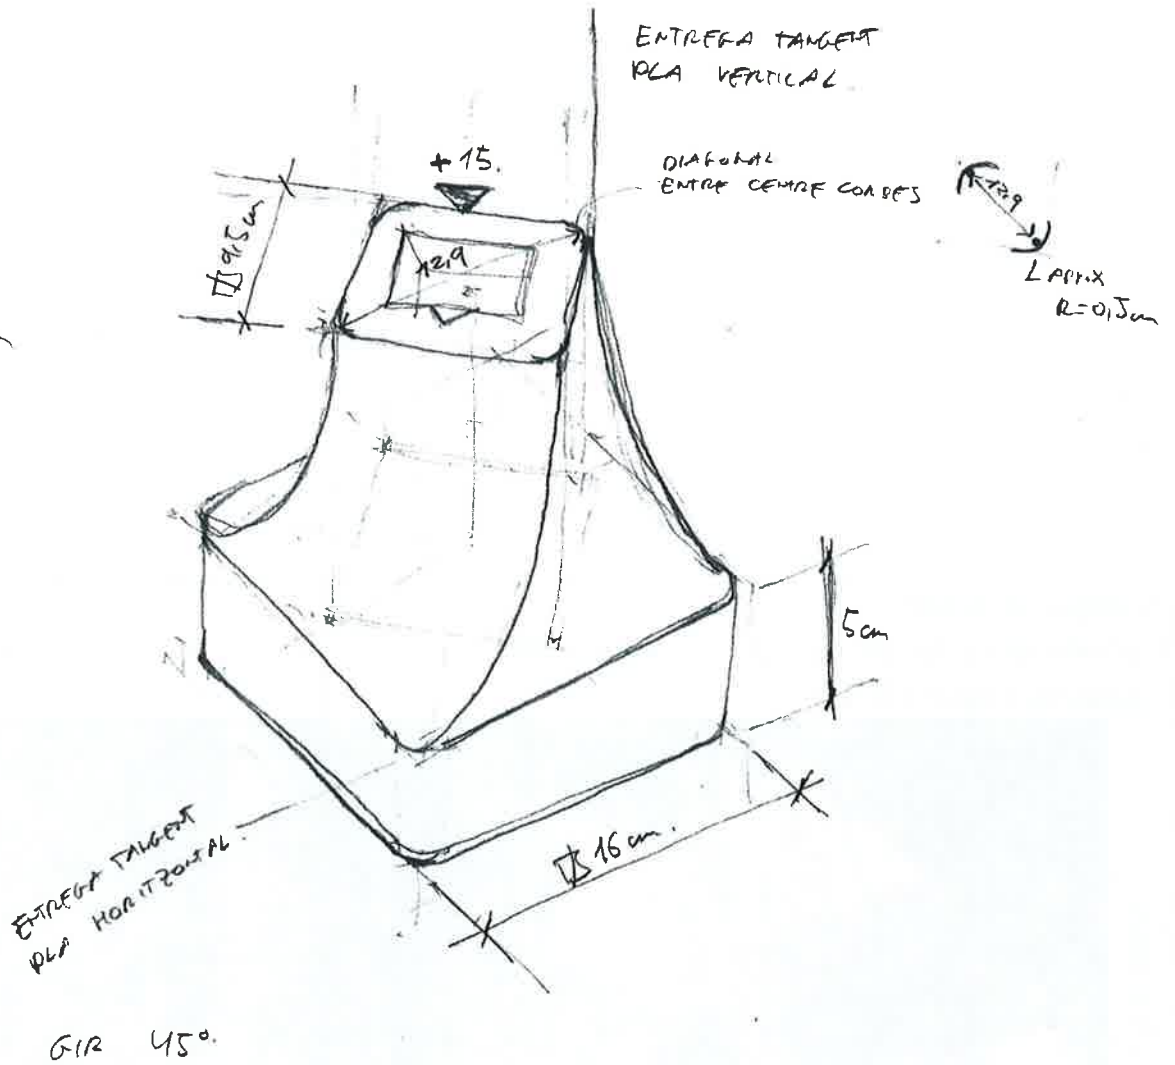 ENTREGA TANGENT
PLA VERTICAL
+15.
DIAGONAL
ENTRE CENTRE CORBES
12,9
L APRIX
R=0,5cm
9,5cm
12,9
5cm
16 cm.
ENTREGA TANGENT
PLA HORITZONTAL.
GIR 45º.